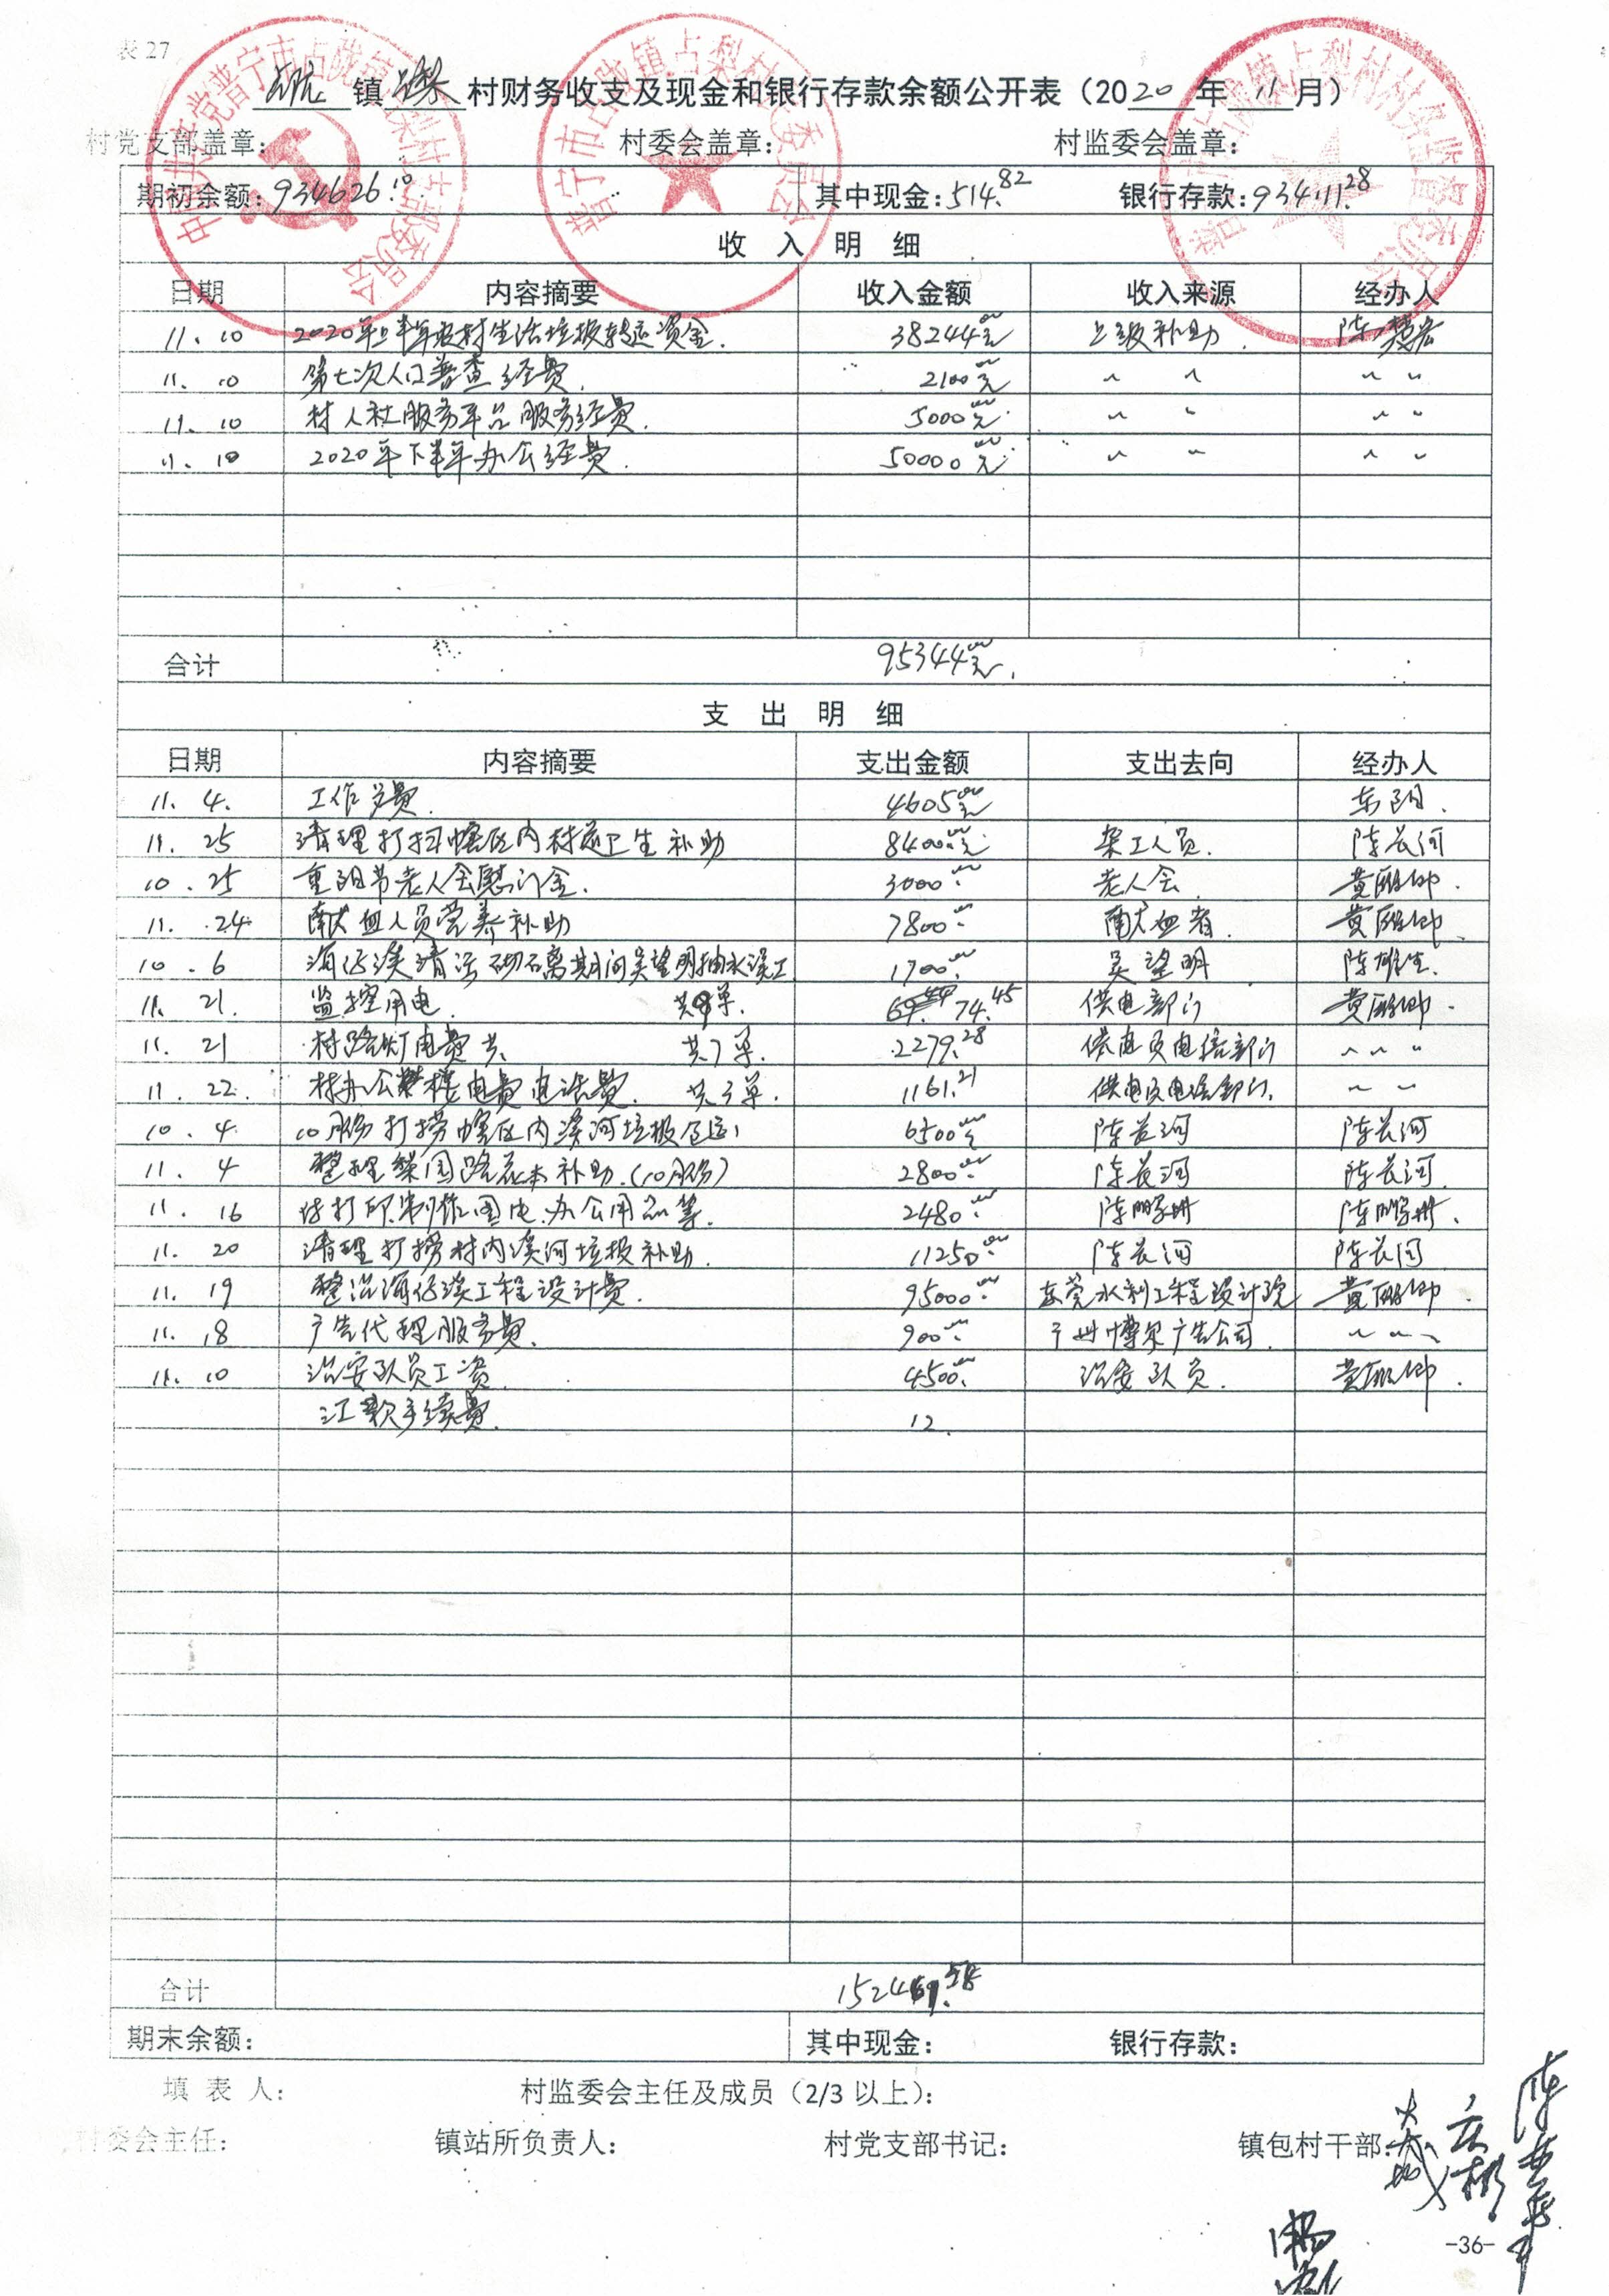 表 27
占陇 镇 占梨 村财务收支及现金和银行存款余额公开表（2020 年 11 月）
村党支部盖章： 村委会盖章： 村监委会盖章：
期初余额：934626.10 其中现金：514.82 银行存款：934111.28
收 入 明 细
日期 内容摘要 收入金额 收入来源 经办人
11. 10 2020年上半年农村生活垃圾转运资金. 38244.00元 上级补助.
11. 10 第七次人口普查经费. 2100.00元 〃 〃 〃 〃
11. 10 村人社服务平台服务经费. 5000.00元 〃 〃 〃 〃
11. 10 2020年下半年办公经费. 50000.00元 〃 〃 〃 〃
合计 95344.00元.
支 出 明 细
日期 内容摘要 支出金额 支出去向 经办人
11. 4. 工作 费. 4605.00元
11. 25 清理打扫辖区内村道卫生补助 8400.00元 杂工人员. 陈长河
10. 25 重阳节老人会慰问金. 3000.00 老人会 黄丽卿.
11. 24 献血人员营养补助 7800.00 献血者. 黄丽卿
10. 6 清淤砌石篱期间吴望明抽水误工 1700.00 吴望明
11. 21. 监控用电. 共9单. 74.45 供电部门 黄丽卿.
11. 21 村路灯电费共. 共7单. 2279.28 供电及电信部门 〃 〃 〃
11. 22. 村办公楼电费电话费. 共3单. 1161.21 供电及电信部门. 〃 〃
10. 4 10月份打捞辖区内溪河垃圾 6500.00元 陈长河 陈长河
11. 4 整理梨园路花木补助.(10月份) 2800.00 陈长河 陈长河.
11. 16 打印.制作.办公用品等. 2480.00
11. 20 清理打捞村内溪河垃圾补助. 11250.00 陈长河 陈长河
11. 19 整治 溪工程设计费. 95000.00 东莞水利工程设计院 黄丽卿.
11. 18 广告代理服务费. 900.00 广州博采广告公司. 〃 〃 〃
11. 10 治安队员工资. 4500.00 治安队员. 黄丽卿.
汇款手续费. 12.
合计
期末余额： 其中现金： 银行存款：
填 表 人： 村监委会主任及成员（2/3 以上）：
村委会主任： 镇站所负责人： 村党支部书记： 镇包村干部：
-36-